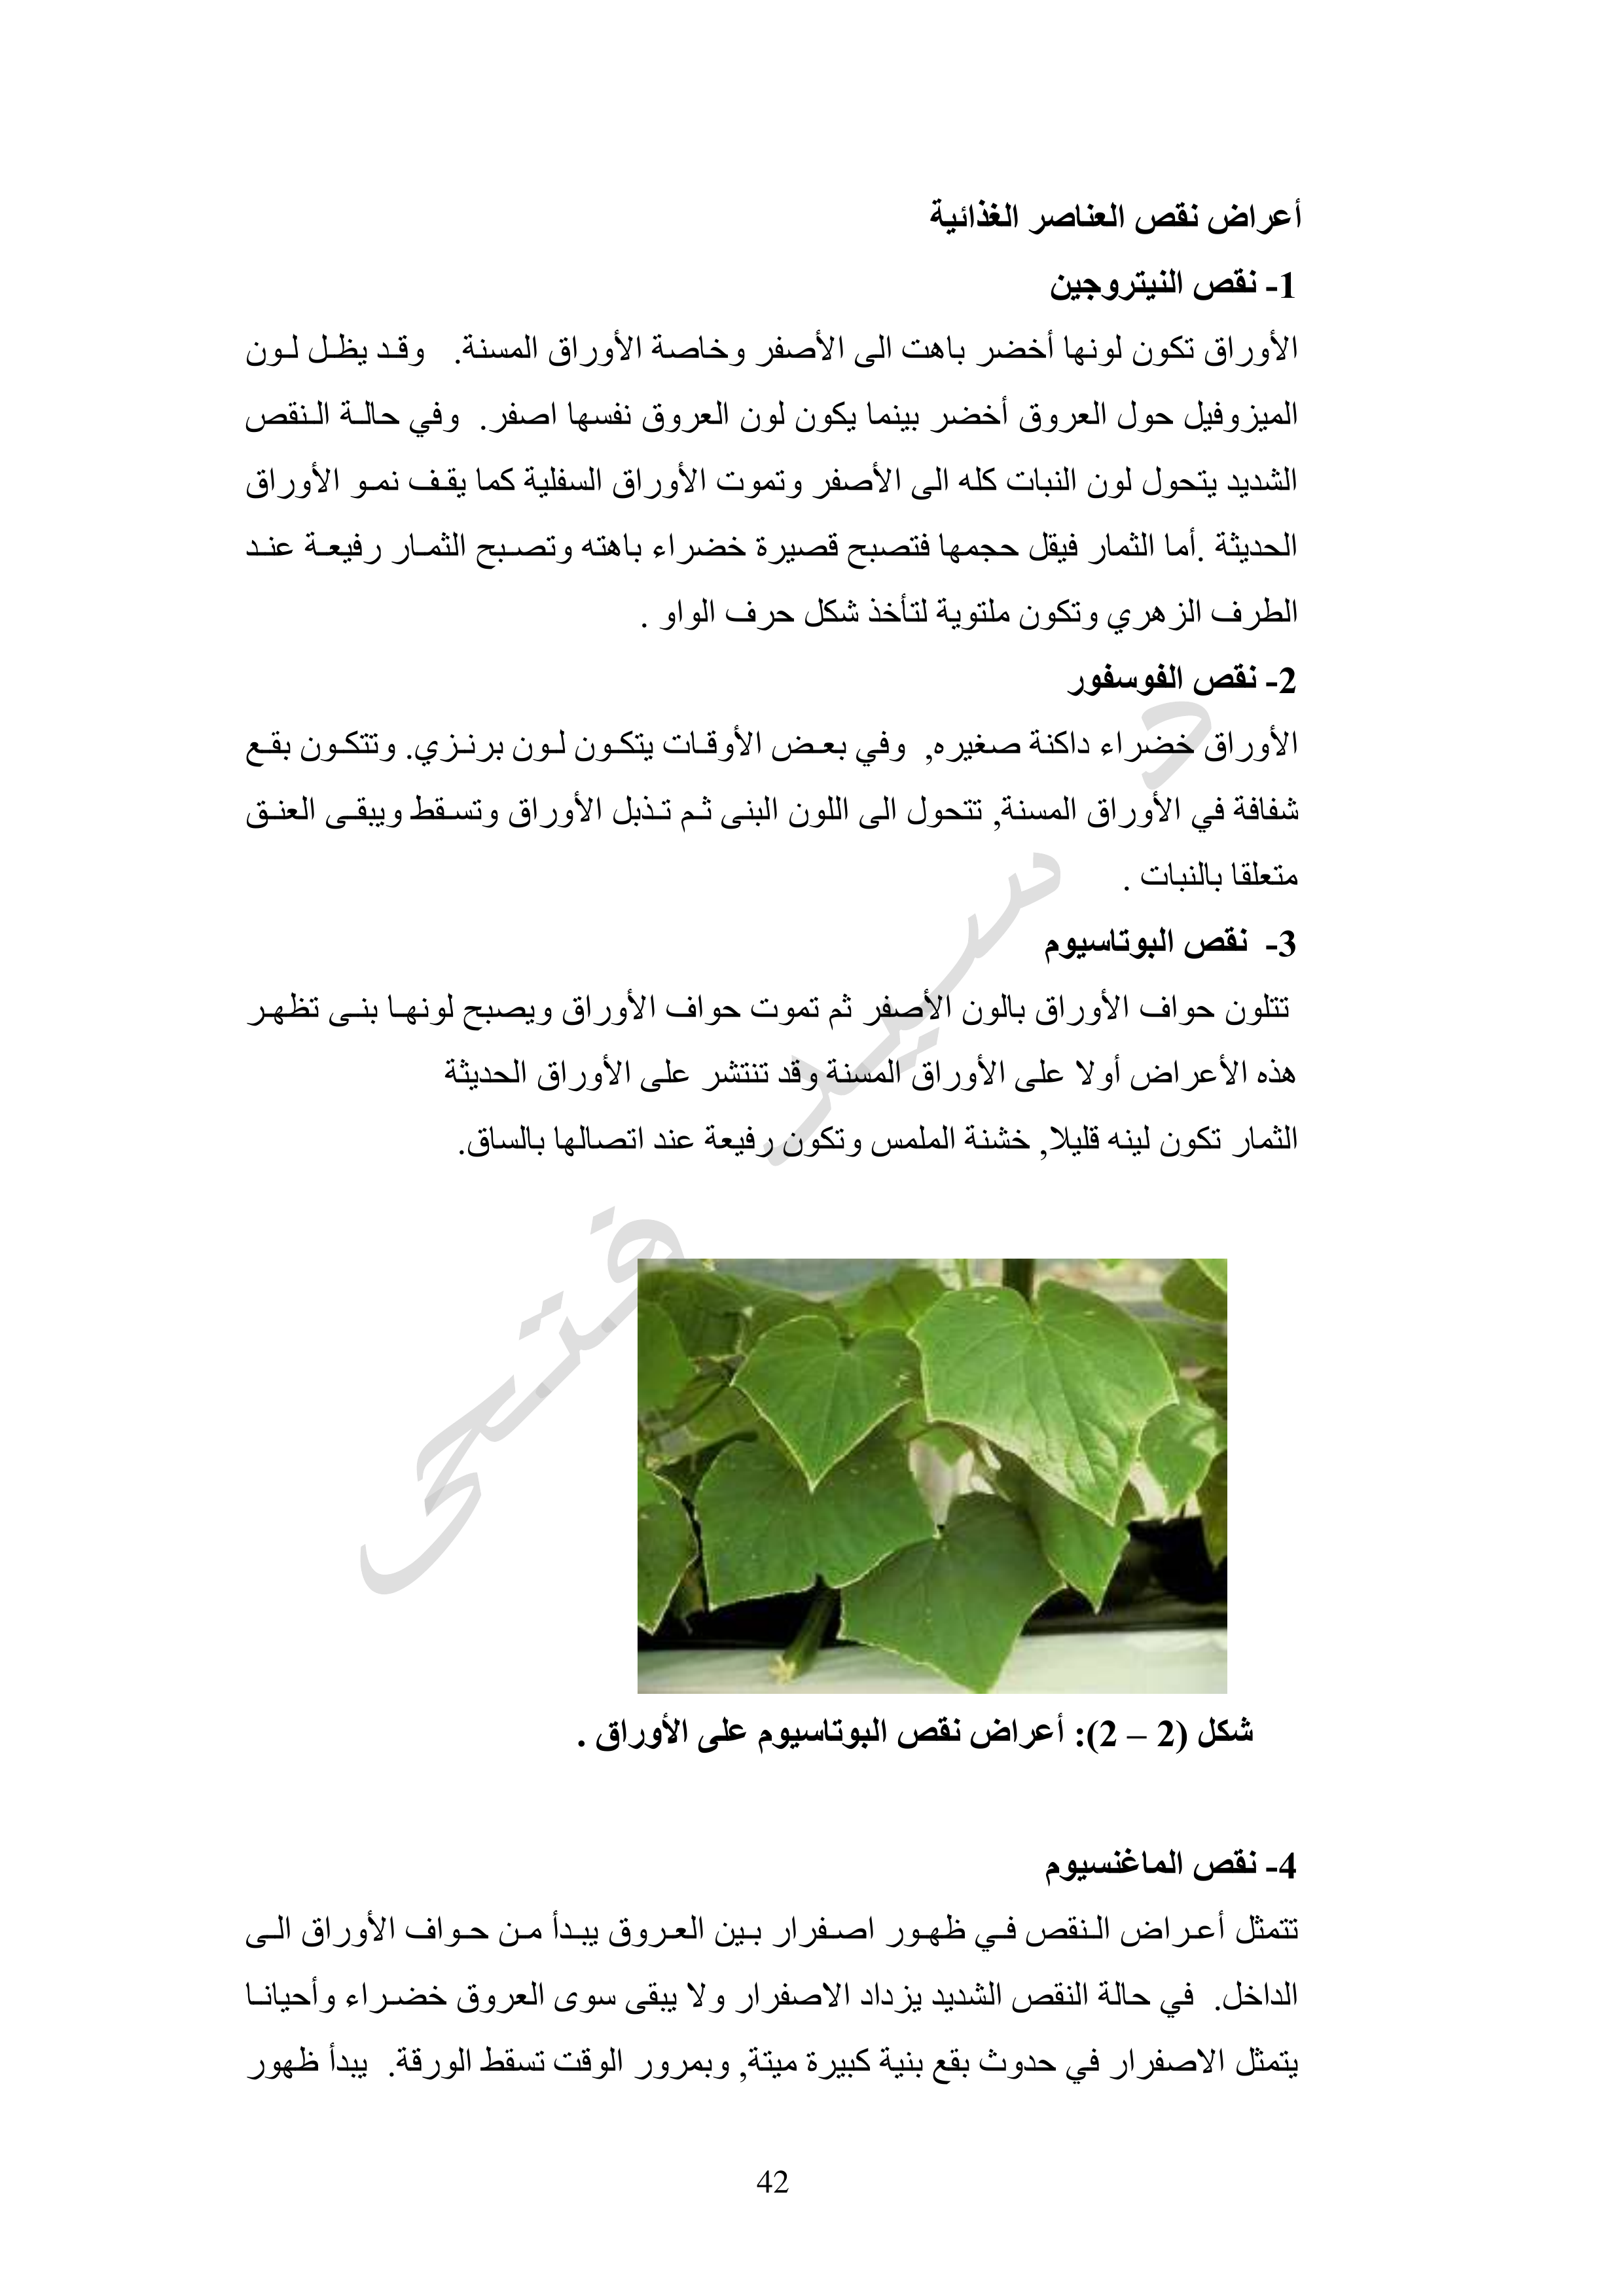 أعراض نقص العناصر الغذائية
1- نقص النيتروجين
الأوراق تكون لونها أخضر باهت الى الأصفر وخاصة الأوراق المسنة. وقد يظل لون
الميزوفيل حول العروق أخضر بينما يكون لون العروق نفسها اصفر. وفي حالة النقص
الشديد يتحول لون النبات كله الى الأصفر وتموت الأوراق السفلية كما يقف نمو الأوراق
الحديثة .أما الثمار فيقل حجمها فتصبح قصيرة خضراء باهته وتصبح الثمار رفيعة عند
الطرف الزهري وتكون ملتوية لتأخذ شكل حرف الواو .
2- نقص الفوسفور
الأوراق خضراء داكنة صغيره, وفي بعض الأوقات يتكون لون برنزي. وتتكون بقع
شفافة في الأوراق المسنة, تتحول الى اللون البنى ثم تذبل الأوراق وتسقط ويبقى العنق
متعلقا بالنبات .
3- نقص البوتاسيوم
تتلون حواف الأوراق بالون الأصفر ثم تموت حواف الأوراق ويصبح لونها بنى تظهر
هذه الأعراض أولا على الأوراق المسنة وقد تنتشر على الأوراق الحديثة
الثمار تكون لينه قليلا, خشنة الملمس وتكون رفيعة عند اتصالها بالساق.
شكل (2 – 2): أعراض نقص البوتاسيوم على الأوراق .
4- نقص الماغنسيوم
تتمثل أعراض النقص في ظهور اصفرار بين العروق يبدأ من حواف الأوراق الى
الداخل. في حالة النقص الشديد يزداد الاصفرار ولا يبقى سوى العروق خضراء وأحيانا
يتمثل الاصفرار في حدوث بقع بنية كبيرة ميتة, وبمرور الوقت تسقط الورقة. يبدأ ظهور
42
د سيد فتحى